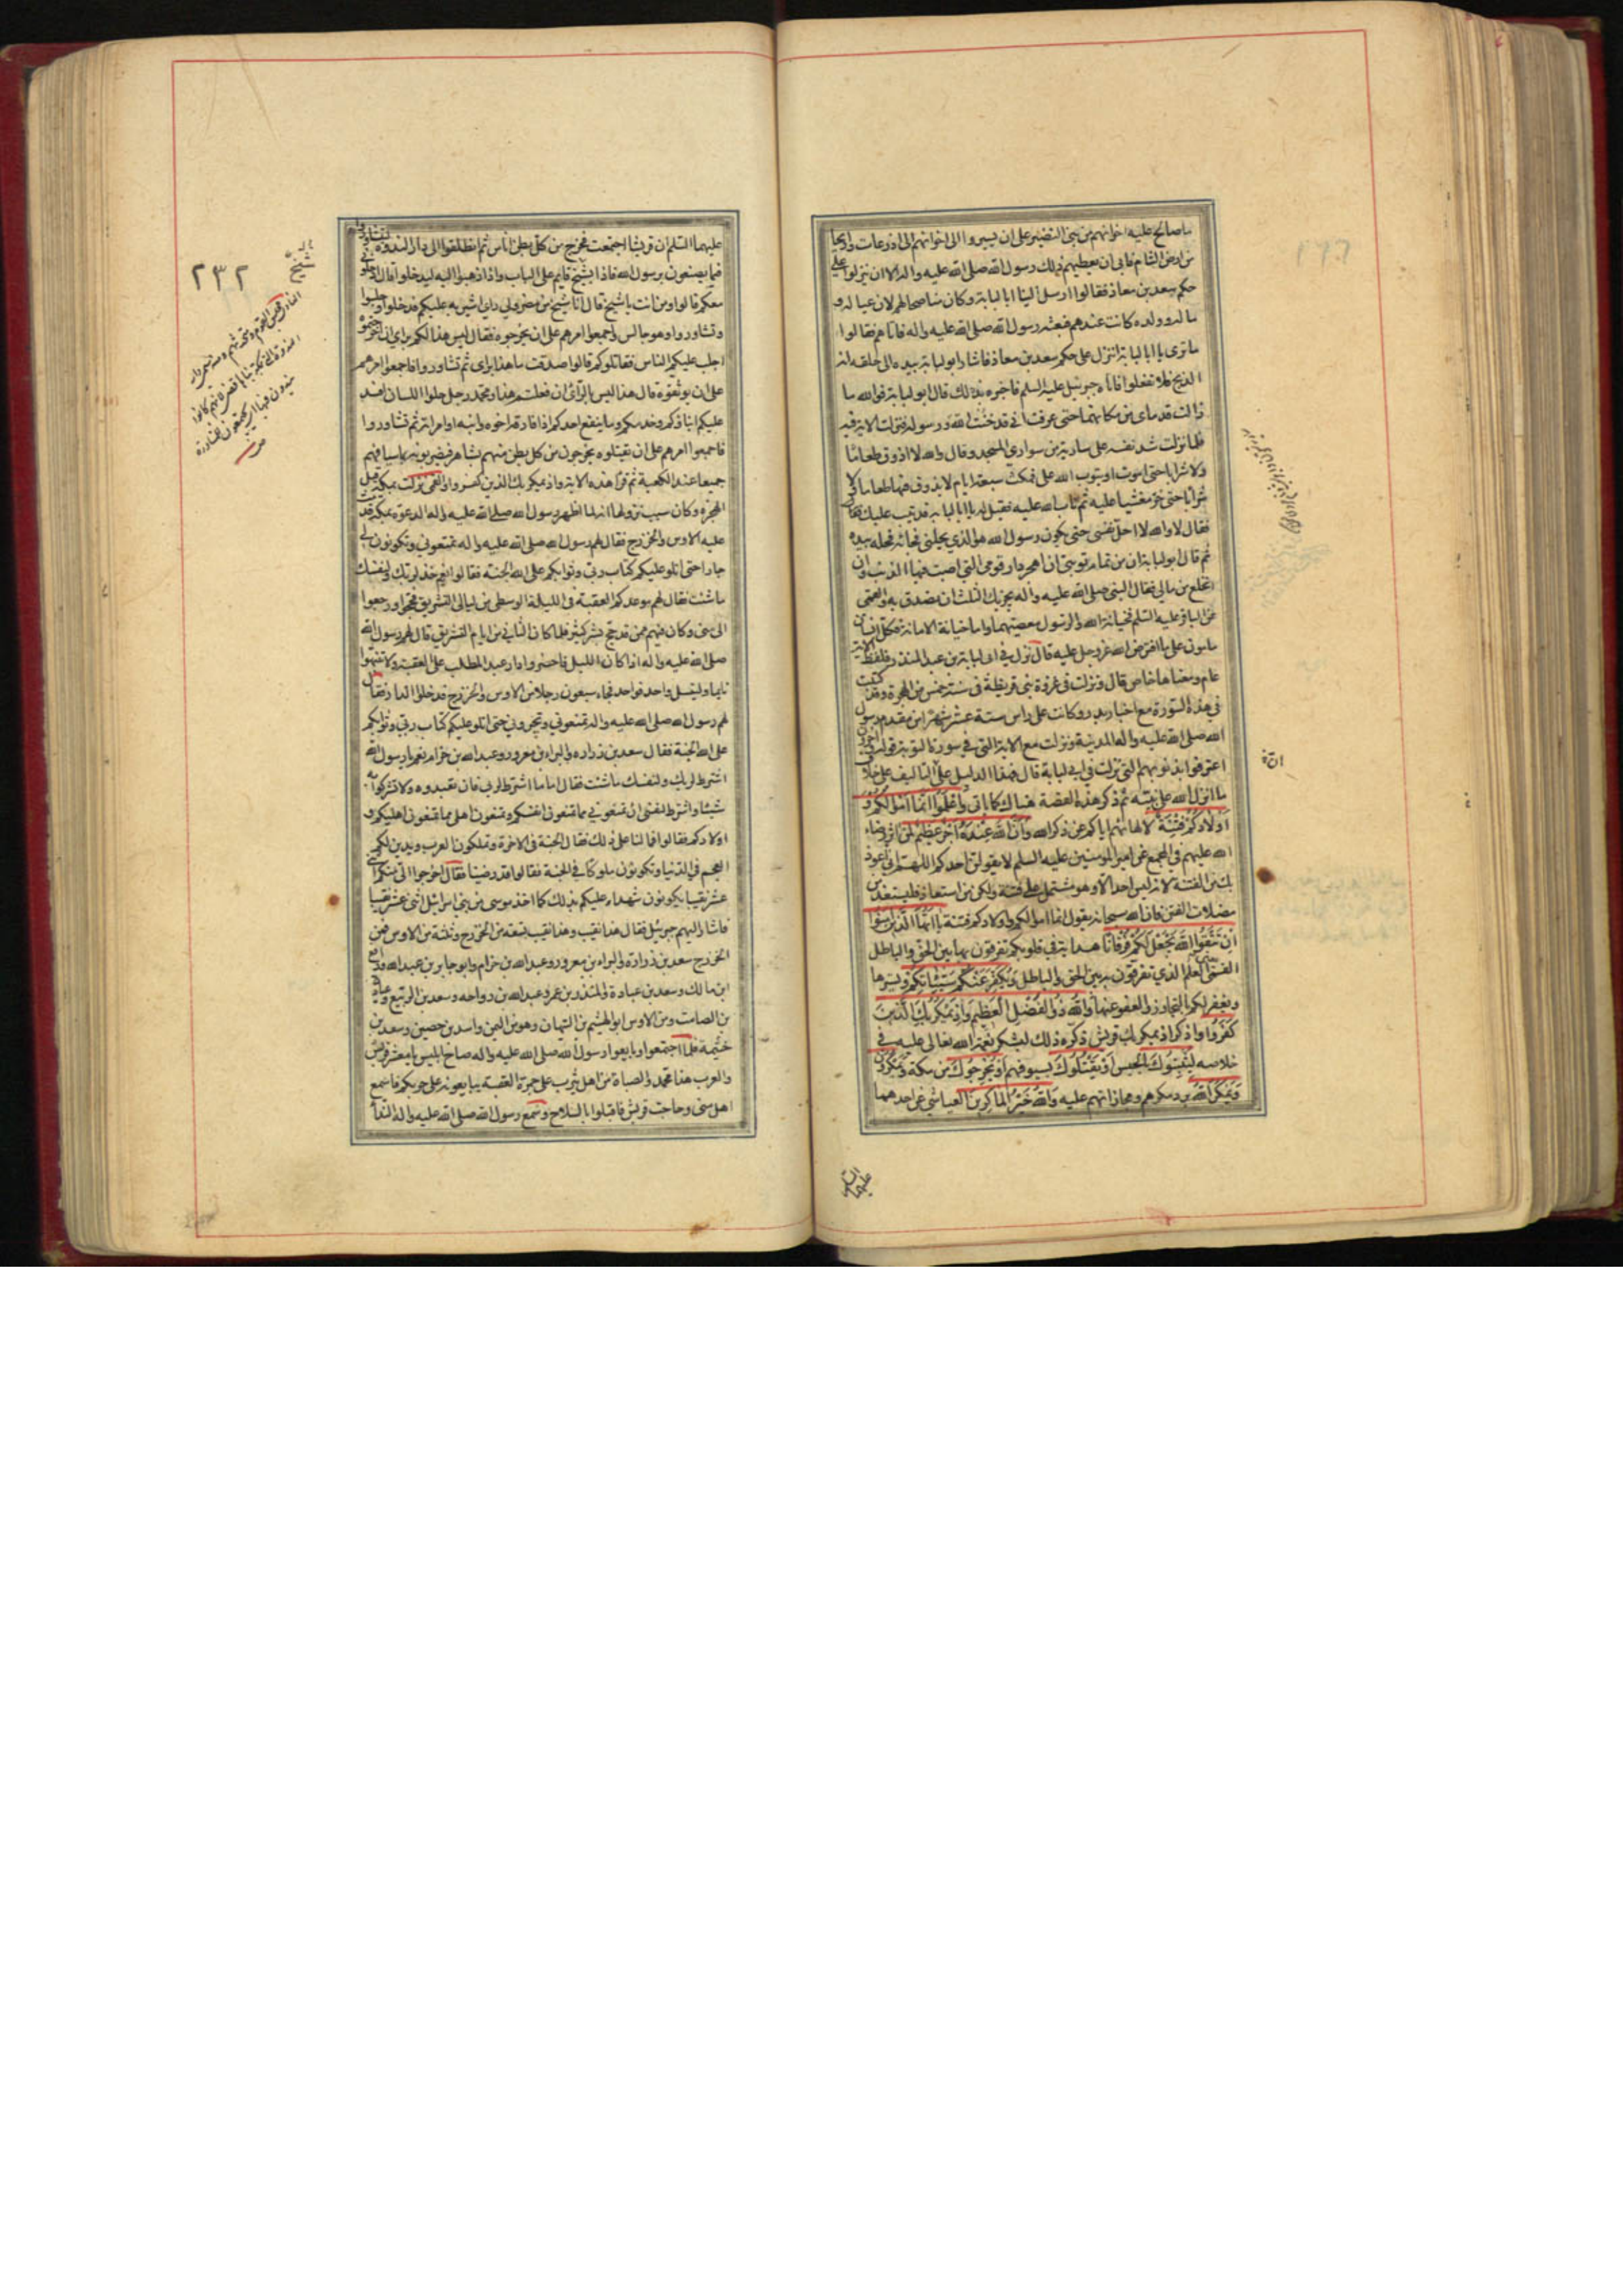 ما صالح عليه اخوانهم من بني النضير على ان يسيروا الى اخوانهم الى اذرعات واريحا
من ارض الشام فابى ان يعطيهم ذلك رسول الله صلى الله عليه واله الا ان ينزلوا على
حكم سعد بن معاذ فقالوا ارسل الينا ابا لبابة وكان مناصحا لهم لان عياله و
ماله وولده كانت عندهم فبعثه رسول الله صلى الله عليه واله فاتاهم فقالوا
ما ترى يا ابا لبابة اننزل على حكم سعد بن معاذ فاشار ابو لبابة بيده الى حلقه انه
الذبح فلا تفعلوا فاتاه جبرئيل عليه السلم فاخبره بذلك قال ابو لبابة فوالله ما
زالت قدماي من مكانهما حتى عرفت اني قد خنت الله ورسوله فنزلت الاية فيه
فلما نزلت شد نفسه على سارية من سواري المسجد وقال والله لا اذوق طعاما
ولا شرابا حتى اموت او يتوب الله علي فمكث سبعة ايام لا يذوق فيها طعاما ولا
شرابا حتى خر مغشيا عليه ثم تاب الله عليه فقيل له يا ابا لبابة قد تيب عليك
فقال لا والله لا احل نفسي حتى يكون رسول الله هو الذي يحلني فجائه فحله بيده
ثم قال ابو لبابة ان من تمام توبتي ان اهجر دار قومي التي اصبت فيها الذنب وان
انخلع من مالي فقال النبي صلى الله عليه واله يجزيك الثلث ان تصدق به والقمى
عن الباقر عليه السلم فخيانة الله والرسول معصيتهما واما خيانة الامانة فكل انسان
مامون على ما افترض الله عز وجل عليه قال نزل في ابي لبابة بن عبد المنذر فلفظ الاية
عام ومعناها خاص قال ونزلت في غزوة بني قريظة في سنة خمس من الهجرة وقد كتبت
في هذه السورة مع اخبار بدر وكانت على راس ستة عشر شهرا من مقدم رسول
الله صلى الله عليه واله المدينة ونزلت مع الاية التي في سورة التوبة قوله واخرون
اعترفوا بذنوبهم التي نزلت في ابي لبابة قال فهذا الدليل على ان التاليف على خلاف
ما انزل الله على نبيه ثم ذكر هذه القصة هناك كما ياتي واعلموا انما اموالكم و
اولادكم فتنة لالهائهم اياكم عن ذكر الله وان الله عنده اجر عظيم لمن اثر رضاء
الله عليهم في المجمع عن امير المؤمنين عليه السلم لا يقولن احدكم اللهم اني اعوذ
بك من الفتنة لانه ليس احد الا وهو مشتمل على فتنة ولكن من استعاذ فليستعذ من
مضلات الفتن فان الله سبحانه يقول انما اموالكم واولادكم فتنة يا ايها الذين امنوا
ان تتقوا الله يجعل لكم فرقانا هداية في قلوبكم تفرقون بها بين الحق والباطل
القمى يعني العلم الذي تفرقون به بين الحق والباطل ويكفر عنكم سيئاتكم ويسترها
ويغفر لكم بالتجاوز والعفو عنها والله ذو الفضل العظيم واذ يمكر بك الذين
كفروا واذكر اذ يمكر بك قريش ذكره ذلك ليشكر نعمة الله تعالى عليه في
خلاصه ليثبتوك بالحبس او يقتلوك بسيوفهم او يخرجوك من مكة ويمكرون
ويمكر الله برد مكرهم ومجازاتهم عليه والله خير الماكرين العياشي عن احدهما
عليهما السلم
٢٣٢
شيخ
عليهما السلم ان قريشا اجتمعت فخرج من كل بطن اناس ثم انطلقوا الى دار الندوة ليتشاوروا
فيما يصنعون برسول الله فاذا شيخ قايم على الباب واذا ذهبوا اليه ليدخلوا قال ادخلوني
معكم قالوا ومن انت يا شيخ قال انا شيخ من مضر ولي راي اشير به عليكم فدخلوا وجلسوا
وتشاوروا وهو جالس واجمعوا امرهم على ان يخرجوه فقال ليس هذا لكم براي ان اخرجتموه
اجلب عليكم الناس فقاتلوكم قالوا صدقت ما هذا براي ثم تشاوروا فاجمعوا امرهم
على ان يوثقوه قال هذا ليس بالراي ان فعلتم هذا ومحمد رجل حلو اللسان افسد
عليكم ابناءكم وخدمكم وما ينفع احدكم اذا فارقه اخوه وابنه او امراته ثم تشاوروا
فاجمعوا امرهم على ان يقتلوه يخرجون من كل بطن منهم بشاهر فيضربونه باسيافهم
جميعا عند الكعبة ثم قرأ هذه الاية واذ يمكر بك الذين كفروا والقمى نزلت بمكة قبل
الهجرة وكان سبب نزولها انه لما اظهر رسول الله صلى الله عليه واله الدعوة بمكة قدمت
عليه الاوس والخزرج فقال لهم رسول الله صلى الله عليه واله تمنعوني وتكونون لي
جارا حتى اتلو عليكم كتاب ربي وثوابكم على الله الجنة فقالوا نعم خذ لربك ولنفسك
ما شئت فقال لهم موعدكم العقبة في الليلة الوسطى من ليالي التشريق فحجوا ورجعوا
الى منى وكان فيهم ممن قد حج بشر كثير فلما كان الثاني من ايام التشريق قال لهم رسول الله
صلى الله عليه واله اذا كان الليل فاحضروا دار عبد المطلب على العقبة ولا تنبهوا
نايما ولينسل واحد فواحد فجاء سبعون رجلا من الاوس والخزرج فدخلوا الدار فقال
لهم رسول الله صلى الله عليه واله تمنعوني وتجيروني حتى اتلو عليكم كتاب ربي وثوابكم
على الله الجنة فقال سعد بن زرارة والبراء بن معرور وعبد الله بن حزام نعم يا رسول الله
اشترط لربك ولنفسك ما شئت فقال اما ما اشترط لربي فان تعبدوه ولا تشركوا به
شيئا واشترط لنفسي ان تمنعوني مما تمنعون انفسكم وتمنعون اهلي مما تمنعون اهليكم و
اولادكم فقالوا فما لنا على ذلك فقال الجنة في الاخرة وتملكون العرب ويدين لكم
العجم في الدنيا وتكونون ملوكا في الجنة فقالوا قد رضينا فقال اخرجوا الي منكم اثني
عشر نقيبا يكونون شهداء عليكم بذلك كما اخذ موسى من بني اسرائيل اثني عشر نقيبا
فاشار اليهم جبرئيل فقال هذا نقيب وهذا نقيب تسعة من الخزرج وثلثة من الاوس فمن
الخزرج سعد بن زرارة والبراء بن معرور وعبد الله بن حزام وابو جابر بن عبد الله ورافع
ابن مالك وسعد بن عبادة والمنذر بن عمر وعبد الله بن رواحه وسعد بن الربيع وعبادة
بن الصامت ومن الاوس ابو الهيثم بن التيهان وهو من اليمن واسد بن حصين وسعد بن
خثيمة فلما اجتمعوا وبايعوا رسول الله صلى الله عليه واله صاح ابليس يا معشر قريش
والعرب هذا محمد والصباة من اهل يثرب على جمرة العقبة يبايعونه على حربكم فاسمع
اهل منى وهاجت قريش فاقبلوا بالسلاح وسمع رسول الله صلى الله عليه واله الندا